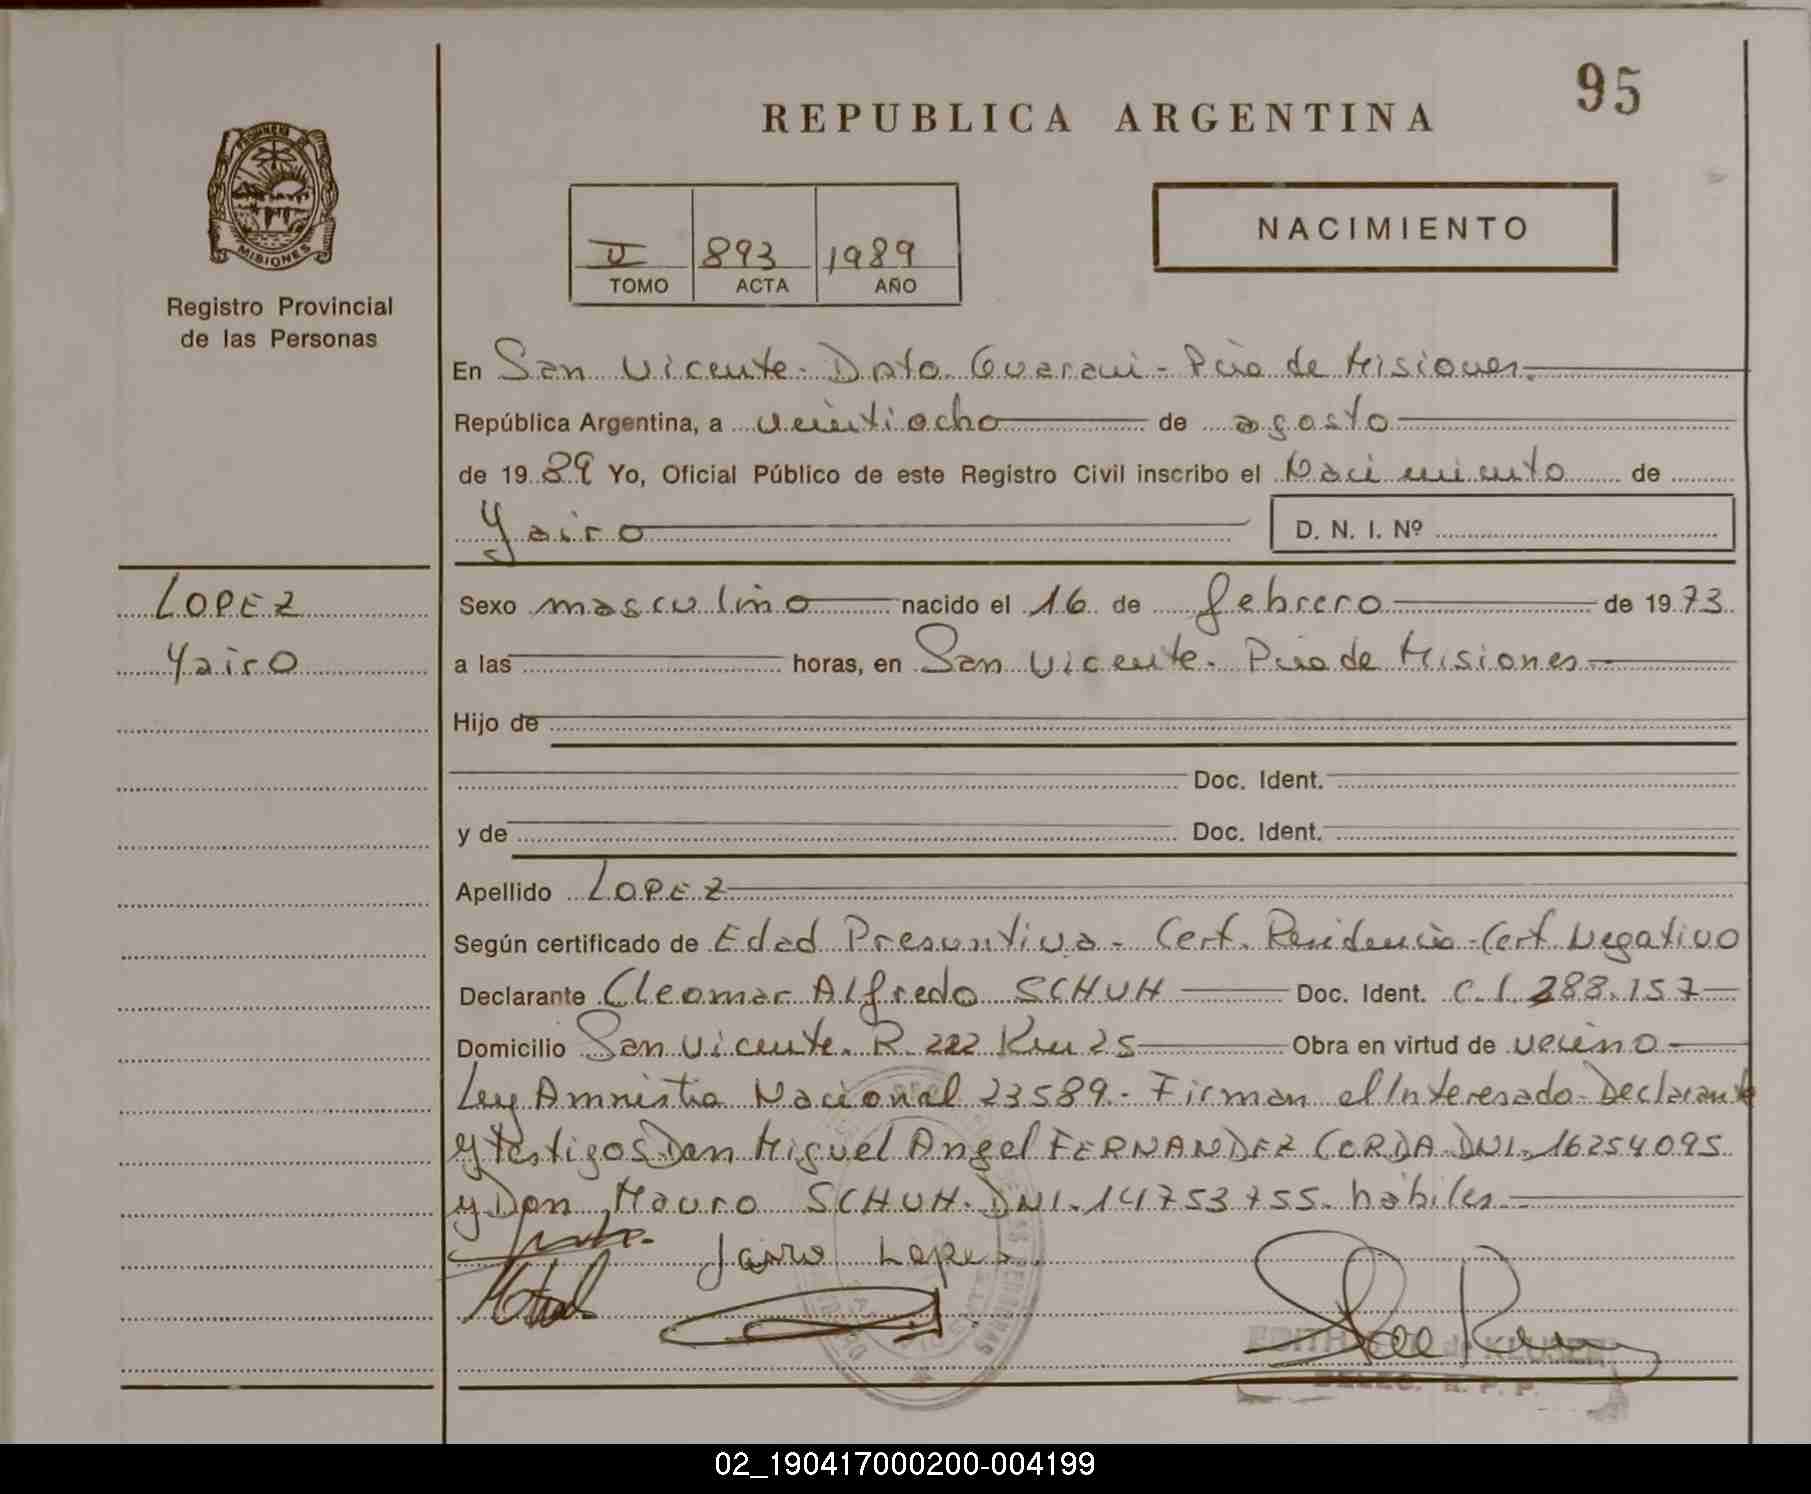 95
REPUBLICA ARGENTINA
PROVINCIA DE
MISIONES
Registro Provincial
de las Personas
II 893 1989
TOMO ACTA AÑO
NACIMIENTO
En San Vicente - Dpto. Guarani - Pcia de Misiones.
República Argentina, a veintiocho de agosto
de 1989 Yo, Oficial Público de este Registro Civil inscribo el Nacimiento de
Yairo D. N. I. Nº
LOPEZ
Yairo
Sexo masculino nacido el 16 de febrero de 1973
a las horas, en San Vicente. Pcia de Misiones
Hijo de
Doc. Ident.
y de Doc. Ident.
Apellido LOPEZ
Según certificado de Edad Presuntiva - Cert. Residencia - Cert Negativo
Declarante Cleomar Alfredo SCHUH Doc. Ident. C.I. 288.157
Domicilio San Vicente. R. 222 Km 25 Obra en virtud de vecino
Ley Amnistia Nacional 23589.- Firman el Interesado - Declarante
y testigos Don Miguel Angel FERNANDEZ CORDA. DNI. 16254095
y Don Mauro SCHUH. DNI. 14753755. habiles
Jairo Lopes
DELEG. R. P. P.
02_190417000200-004199